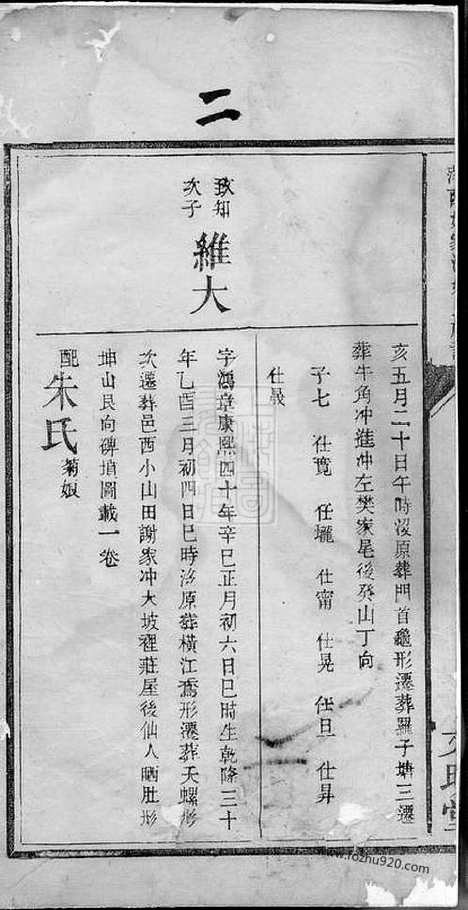 二
亥五月二十日午時沒原葬門首龜形遷葬羅子塘三遷
葬牛角冲進冲左樊家尾後癸山丁向
子七 仕寬 仕壠 仕甯 仕晃 仕旦 仕昇
仕晸
致知
次子
維大
字鴻章康熙四十年辛巳正月初六日巳時生乾隆三十
年乙酉三月初四日巳時沒原葬橫江鳶形遷葬天螺形
次遷葬邑西小山田謝家冲大坡裡莊屋後仙人晒肚形
坤山艮向碑墳圖載一卷
配朱氏菊娘
www.fozhu920.com